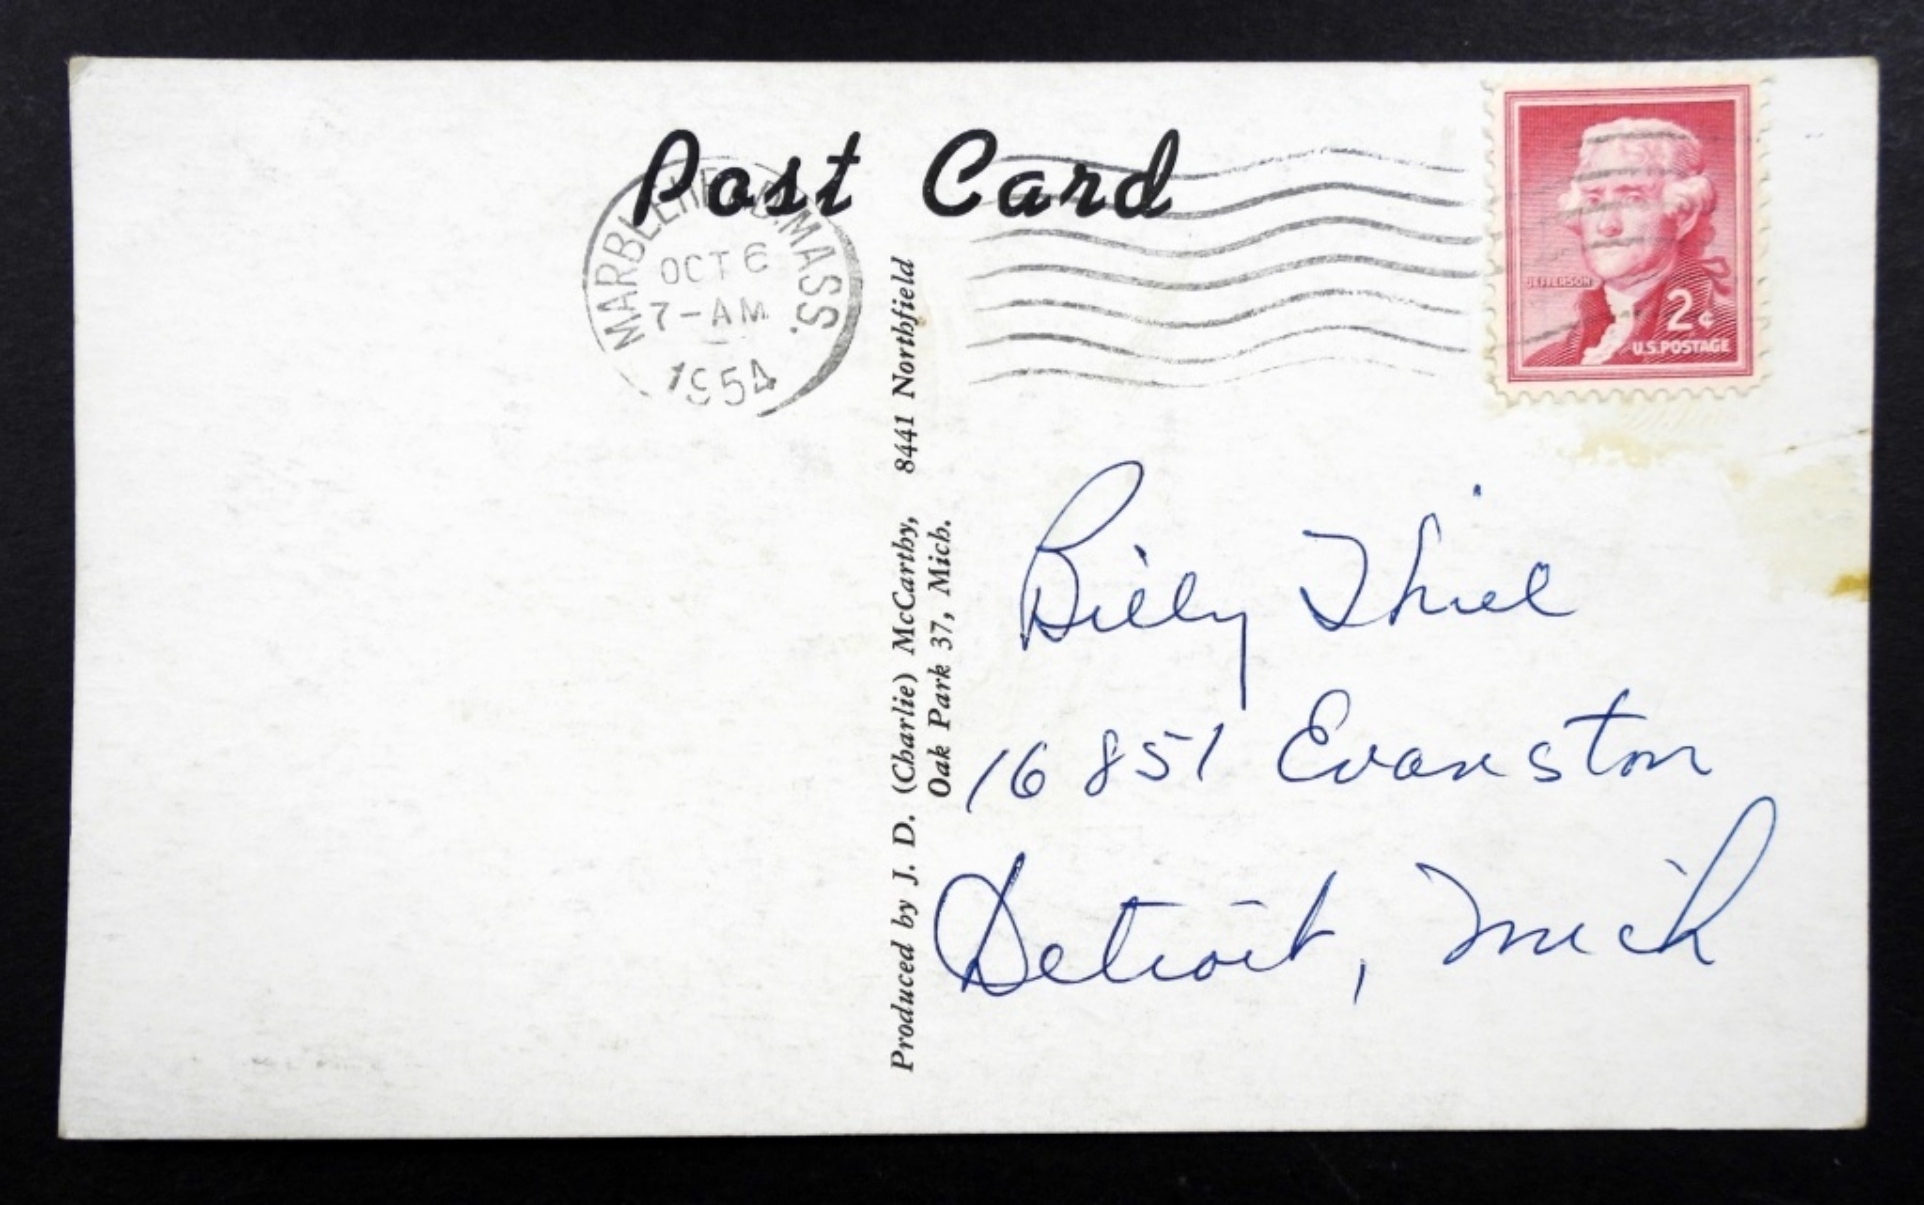 Post Card
MARBLEHEAD MASS.
OCT 6
7-AM
1954
JEFFERSON
2¢
U.S. POSTAGE
Produced by J. D. (Charlie) McCarthy, 8441 Northfield
Oak Park 37, Mich.
Billy Thiel
16851 Evanston
Detroit, Mich